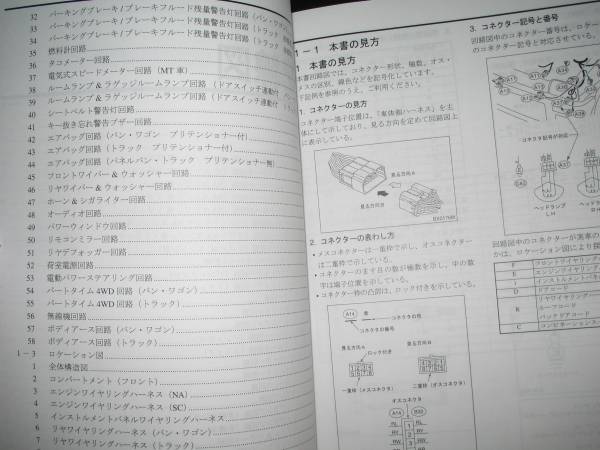 32 パーキングブレーキ/ブレーキフルード残量警告灯回路(バン・ワゴン
33 パーキングブレーキ/ブレーキフルード残量警告灯回路(トラック
34 パーキングブレーキ/ブレーキフルード残量警告灯回路(トラック
35 燃料計回路
36 タコメーター回路
37 電気式スピードメーター回路(MT車)
38 ルームランプ&ラゲッジルームランプ回路(ドアスイッチ連動付
39 ルームランプ&ラゲッジルームランプ回路(ドアスイッチ連動付
40 シートベルト警告灯回路
41 キー抜き忘れ警告ブザー回路
42 エアバッグ回路(バン・ワゴン プリテンショナー付)
43 エアバッグ回路(トラック プリテンショナー付)
44 エアバッグ回路(パネルバン・トラック プリテンショナー無)
45 フロントワイパー&ウォッシャー回路
46 リヤワイパー&ウォッシャー回路
47 ホーン&シガライター回路
48 オーディオ回路
49 パワーウィンドウ回路
50 リモコンミラー回路
51 リヤデフォッガー回路
52 荷室電源回路
53 電動パワーステアリング回路
54 パートタイム4WD回路(バン・ワゴン)
55 パートタイム4WD回路(トラック)
56 無線機回路
57 ボディアース回路(バン・ワゴン)
58 ボディアース回路(トラック)
1-3 ロケーション図
1 全体構造図
2 コンパートメント(フロント)
3 エンジンワイヤリングハーネス(NA)
4 エンジンワイヤリングハーネス(SC)
5 インストルメントパネルワイヤリングハーネス
6 リヤワイヤリングハーネス(バン・ワゴン)
7 リヤワイヤリングハーネス(トラック)
1-1 本書の見方
1 本書の見方
本書回路図では、コネクター形状、極数、オス・
メスの区別、線色などを記号化しています。
下記例を参照のうえ、ご利用ください。
1. コネクターの見方
コネクター端子位置は、「車体側ハーネス」を主
体にして示しており、見る方向を定めて回路図上
に表示している。
見る方向A
見る方向B
2. コネクターの表わし方
• メスコネクターは一重枠で示し、オスコネクター
は二重枠で示している。
• コネクターのます目の数が極数を示し、中の数
字は端子位置を示している。
• コネクター枠の凸部は、ロック付きを示している。
A14
コネクターの色
コネクタの番号
見る方向A
見る方向B
ロック付き
一重枠(メスコネクタ)
二重枠(オスコネクタ)
オスコネクタ
A14
3. コネクター記号と番号
回路図中のコネクター番号は、ロケー
のコネクター記号と対応させている。
コネクタ記号が対応
ヘッドランプ
LH
ヘッドランプ
RH
回路図中のコネクターが実車の
かは、ロケーション図により採
F フロントワイヤリング
E エンジンワイヤリング
D ドアコード
R リヤワイヤリング
ルーフコード
バックドアコード
C コンビネーション